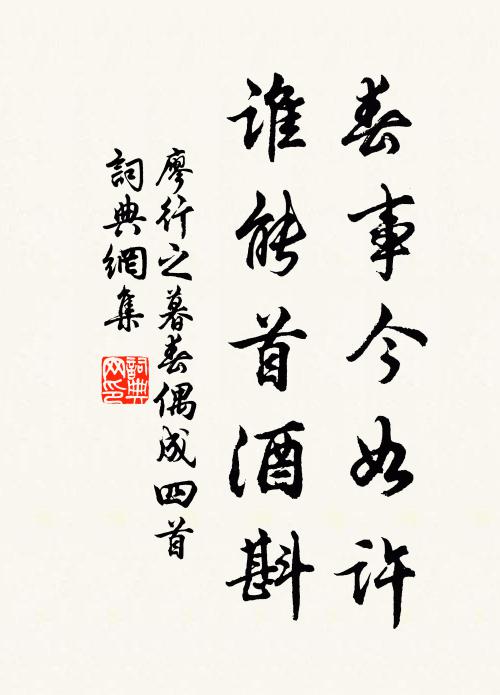 春事今如许
谁能首酒斟
廖行之暮春偶成四首
詞典網集
詞典网印